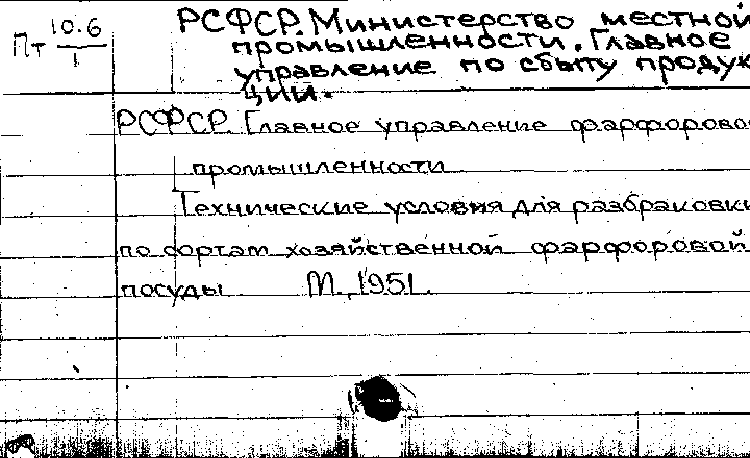 РСФСР. Министерство местной
Пт 10.6/1
промышленности. Главное
управление по сбыту продук
ции.
РСФСР. Главное управление фарфорово
промышленности
Технические условия для разбраковки
по сортам хозяйственной фарфоровой
посуды М., 1951.